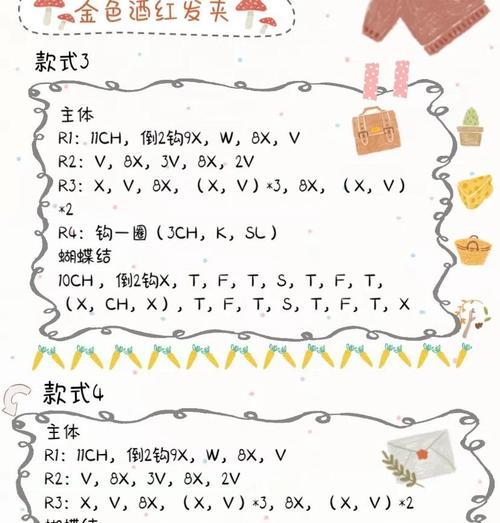 金色酒红发夹
款式3
主体
R1: 11CH, 倒2钩9X, W, 8X, V
R2: V, 8X, 3V, 8X, 2V
R3: X, V, 8X, (X, V)*3, 8X, (X, V)
*2
R4: 钩一圈(3CH, K, SL)
蝴蝶结
10CH, 倒2钩X, T, F, T, S, T, F, T,
(X, CH, X), T, F, T, S, T, F, T, X
款式4
主体
R1: 11CH, 倒2钩9X, W, 8X, V
R2: V, 8X, 3V, 8X, 2V
R3: X, V, 8X, (X, V)*3, 8X, (X, V)*2
蝴蝶结